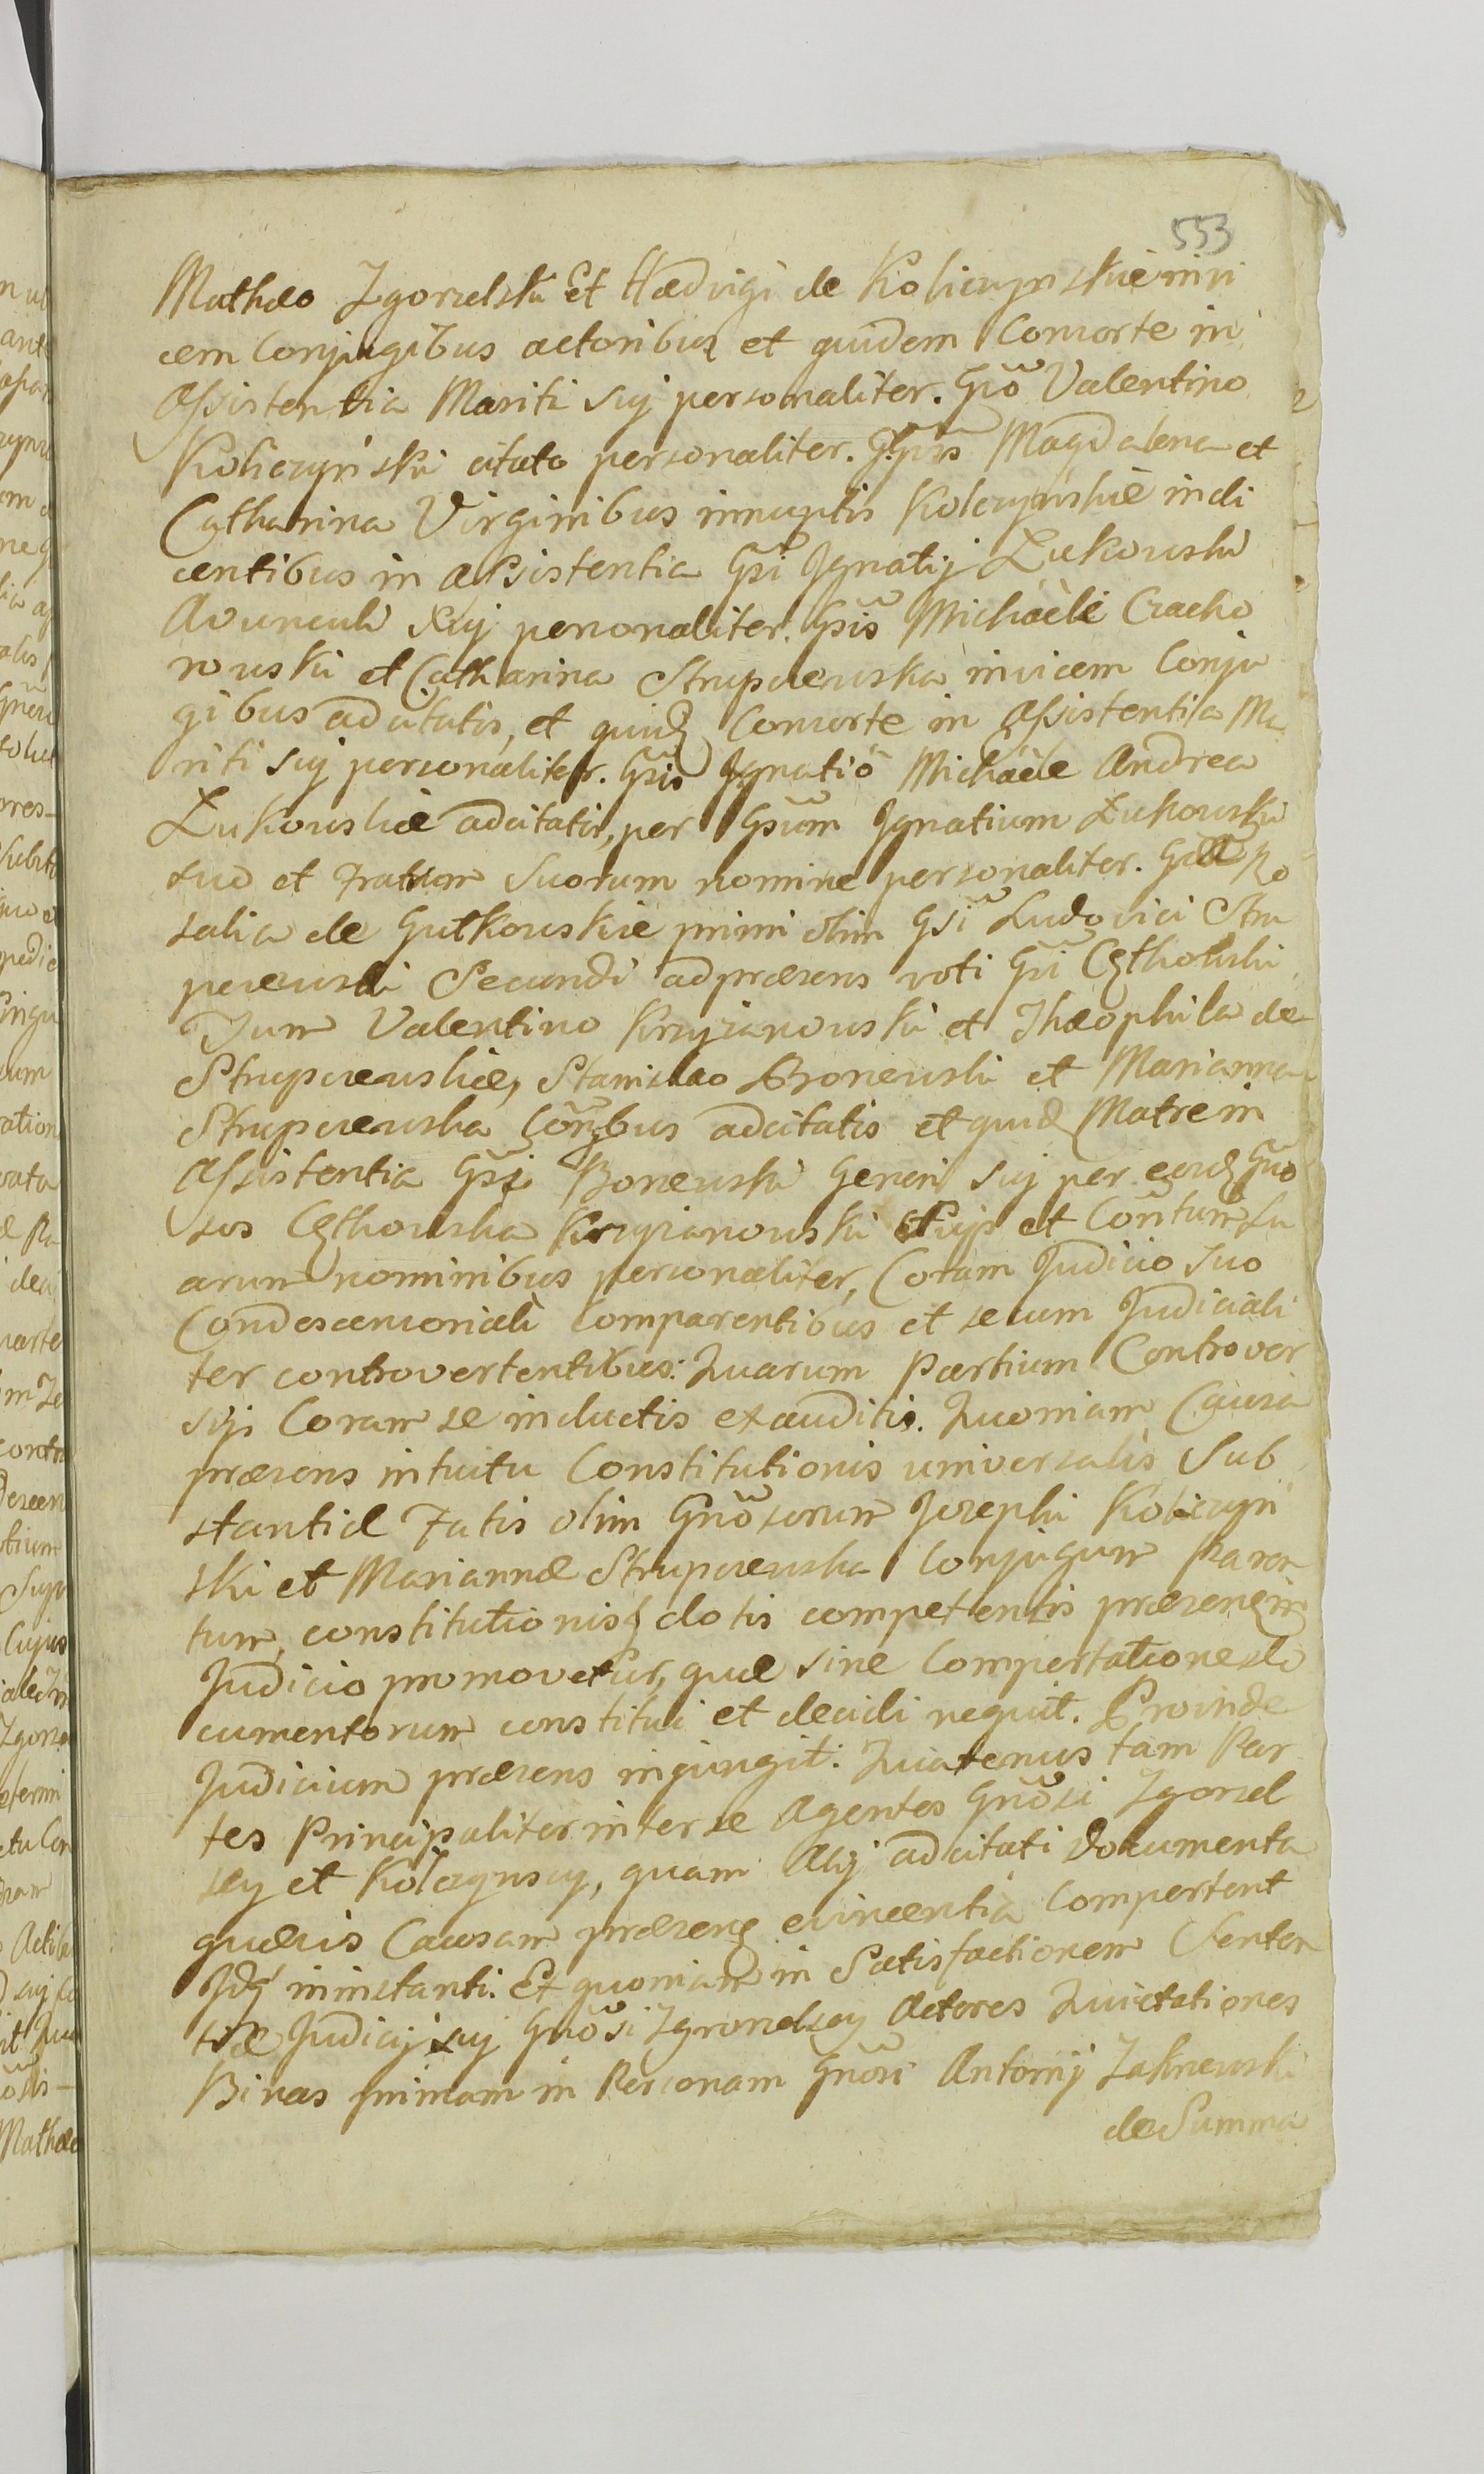 553
Mathæo Zgorzelski Et Hedvigi de Koliczynskie invi
cem Conjugibus actoribus et quidem Consorte in
Assistentia Mariti sui personaliter. Gñõ Valentino
Koliczynski citato personaliter. Magdalena et
Catharina Virginibus innuptis Kolczynskie indi
centibus in assistentia Gsi Ignatij Łukowski
Avunculi suj personaliter. Gsis Michaele Czacho
rowski et Catharina Strupczewska invicem Conju
gibus adcitatis, et quidꝫ Consorte in Assistentia Ma
riti suj personaliter. Gsis Ignatio Michaele Andrea
Łukowskie adcitatis, per Gsum Ignatium Łukowski
suo et Fratrum Suorum nomine personaliter. Ro
salia de Gutkowskie primi olim Gsi Ludovici Stru
pczewski Secundi ad præsens voti Gsi Cethowski
Tum Valentino Krzyzanowski et Theophila de
Strupczewskie, Stanislao Bronewski et Marianna
Strupczewska Conjbus adcitatis et quidꝫ Matre in
Assistentia Gsi Bonewski Generi suj per eosdꝫ Gño
sos Cethowska Krzyzanowski suijs et Consortum su
arum nominibus personaliter, Coram Judicio suo
Condescensoriali Comparentibus et secum Judiciali
ter controvertentibus: Quarum Partium Controver
sijs Coram se inductis exauditis. Quoniam Causa
præsens intuitu Constitutionis universalis Sub
stantiæ Fatis olim Gnõsorum Josephi Koliczyn
ski et Mariannæ Strupczewska Conjugum Paren
tum, constitutionisqꝫ dotis competentis præsenti in
Judicio promovetur, quæ sine Comportatione do
cumentorum constitui et decidi nequit. Proinde
Judicium præsens injungit: Quatenus tam Par
tes Principaliter inter se Agentes Gnõsi Zgorzel
scy et Kolczynscy, quam Alij adcitati Documenta
quævis Causam præsenꝫ evincentia Comportent
Idqꝫ ininstanti. Et quoniam in Satisfactionem Senten
tiæ Judicij suj Gnõsi Zgrorzelscy Actores Quietationes
Binas primam in Personam Gnõsi Antonij Zakrzewski
de Summa